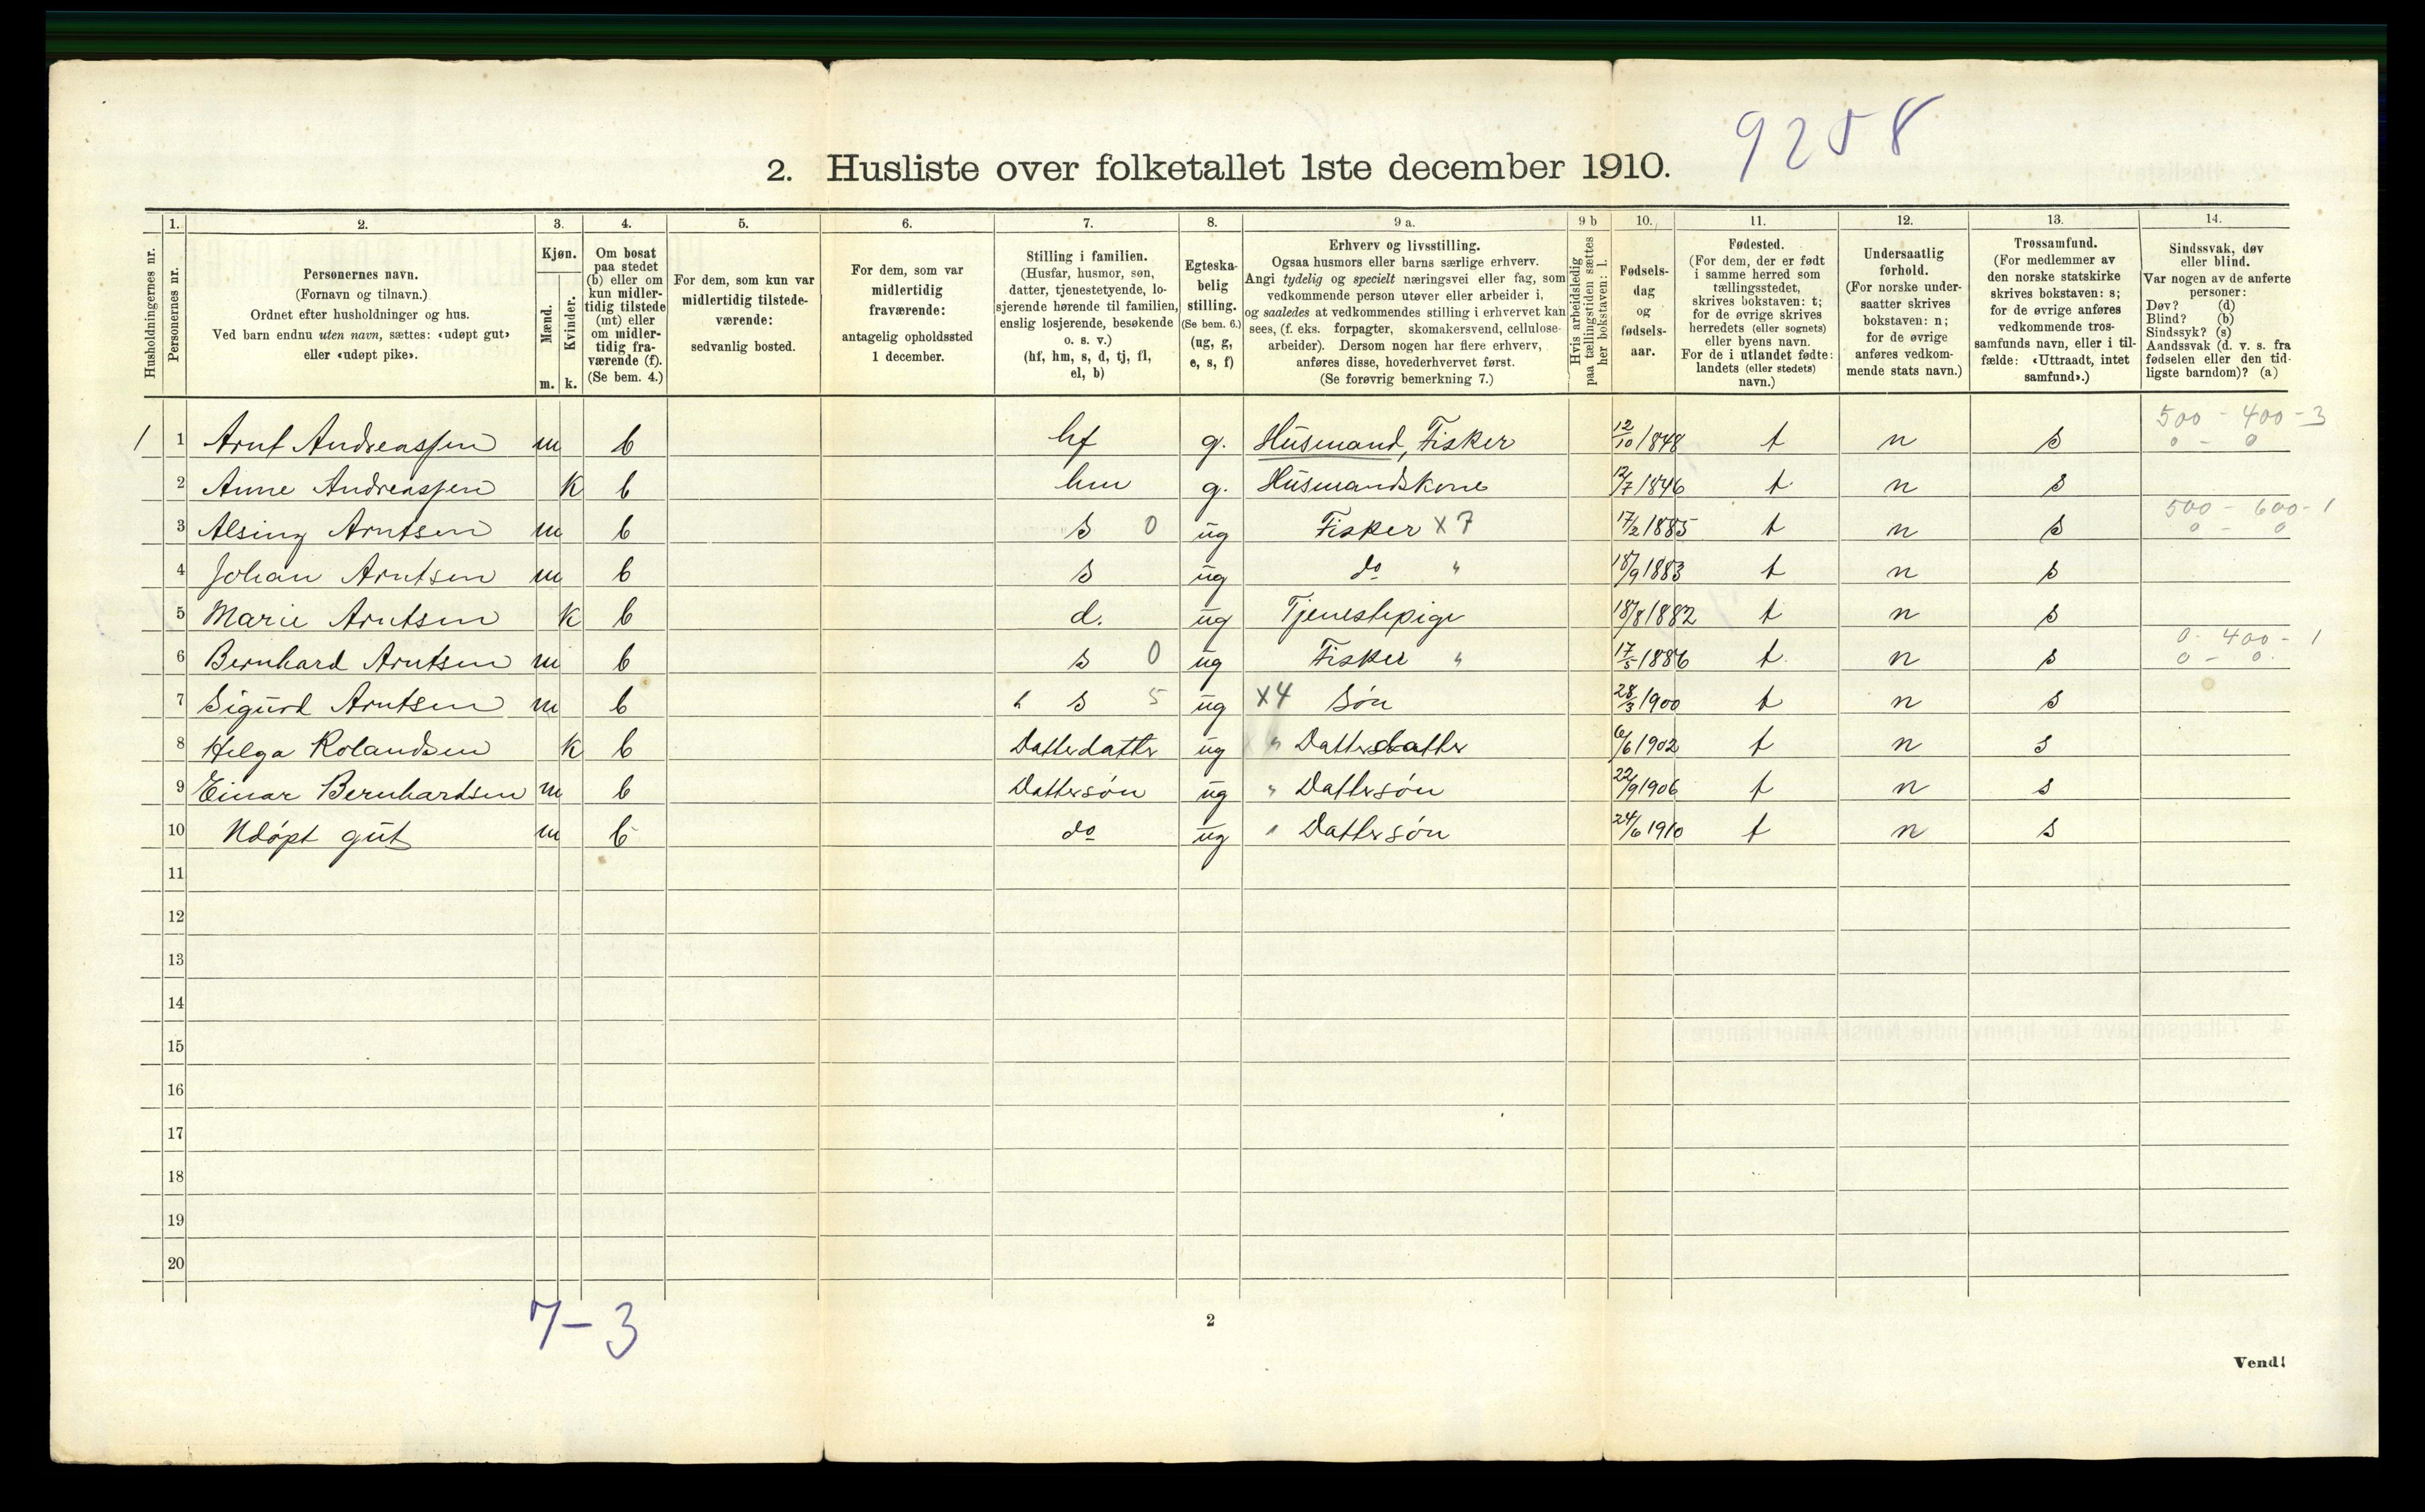 9258
2. Husliste over folketallet 1ste december 1910.
Husholdningernes nr.
1. Personernes nr.
2. Personernes navn.
(Fornavn og tilnavn.)
Ordnet efter husholdninger og hus.
Ved barn endnu uten navn, sættes: «udøpt gut»
eller «udøpt pike».
3. Kjøn.
Mænd. Kvinder.
m. k.
4. Om bosat
paa stedet
(b) eller om
kun midler-
tidig tilstede
(mt) eller
om midler-
tidig fra-
værende (f).
(Se bem. 4.)
5. For dem, som kun var
midlertidig tilstede-
værende:
sedvanlig bosted.
6. For dem, som var
midlertidig
fraværende:
antagelig opholdssted
1 december.
7. Stilling i familien.
(Husfar, husmor, søn,
datter, tjenestetyende, lo-
sjerende hørende til familien,
enslig losjerende, besøkende
o. s. v.)
(hf, hm, s, d, tj, fl,
el, b)
8. Egteska-
belig
stilling.
(Se bem. 6.)
(ug, g,
e, s, f)
9 a. Erhverv og livsstilling.
Ogsaa husmors eller barns særlige erhverv.
Angi tydelig og specielt næringsvei eller fag, som
vedkommende person utøver eller arbeider i,
og saaledes at vedkommendes stilling i erhvervet kan
sees, (f. eks. forpagter, skomakersvend, cellulose-
arbeider). Dersom nogen har flere erhverv,
anføres disse, hovederhvervet først.
(Se forøvrig bemerkning 7.)
9 b Hvis arbeidsledig
paa tællingstiden sættes
her bokstaven: l.
10. Fødsels-
dag
og
fødsels-
aar.
11. Fødested.
(For dem, der er født
i samme herred som
tællingsstedet,
skrives bokstaven: t;
for de øvrige skrives
herredets (eller sognets)
eller byens navn.
For de i utlandet fødte:
landets (eller stedets)
navn.)
12. Undersaatlig
forhold.
(For norske under-
saatter skrives
bokstaven: n;
for de øvrige
anføres vedkom-
mende stats navn.)
13. Trossamfund.
(For medlemmer av
den norske statskirke
skrives bokstaven: s;
for de øvrige anføres
vedkommende tros-
samfunds navn, eller i til-
fælde: «Uttraadt, intet
samfund».)
14. Sindssvak, døv
eller blind.
Var nogen av de anførte
personer:
Døv? (d)
Blind? (b)
Sindssyk? (s)
Aandssvak (d. v. s. fra
fødselen eller den tid-
ligste barndom)? (a)
500 - 400 - 3
1 1 Arnt Andreassen m b hf g. Husmand, Fisker 12/10 1848 t n s 0 - 0
2 Anne Andreassen k b hm g. Husmandskone 12/7 1846 t n s
500 - 600 - 1
3 Alsing Arntsen m b s 0 ug Fisker x 7 17/2 1885 t n s 0 - 0
4 Johan Arntsen m b s ug do " 18/9 1883 t n s
5 Marie Arntsen k b d. ug Tjenestepige 18/8 1882 t n s
0 - 400 - 1
6 Bernhard Arntsen m b s 0 ug Fisker " 17/5 1886 t n s 0 - 0
7 Sigurd Arntsen m b s 5 ug x4 Søn 28/3 1900 t n s
8 Helga Rolandsen k b Datterdatter ug " Datterdatter 6/6 1902 t n s
9 Einar Bernhardsen m b Dattersøn ug " Dattersøn 22/9 1906 t n s
10 Udøpt gut m b do ug " Dattersøn 24/6 1910 t n s
11
12
13
14
15
16
17
18
19
20
7-3
2
Vend!